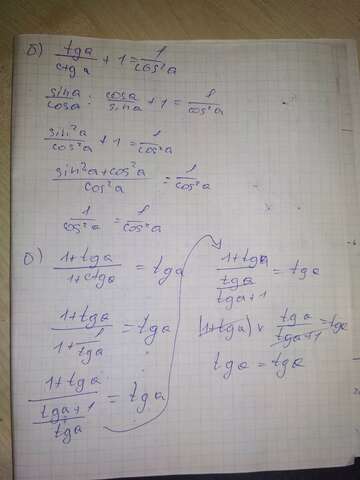 б) tga/ctga + 1 = 1/cos²a
sina/cosa : cosa/sina + 1 = 1/cos²a
sin²a/cos²a + 1 = 1/cos²a
(sin²a + cos²a)/cos²a = 1/cos²a
1/cos²a = 1/cos²a
б) (1 + tga)/(1 + ctga) = tga
(1 + tga)/(1 + 1/tga) = tga
(1 + tga)/((tga + 1)/tga) = tga
(1 + tga)/(tga/(tga + 1)) = tga
(1 + tga) × tga/(tga + 1) = tga
tga = tga